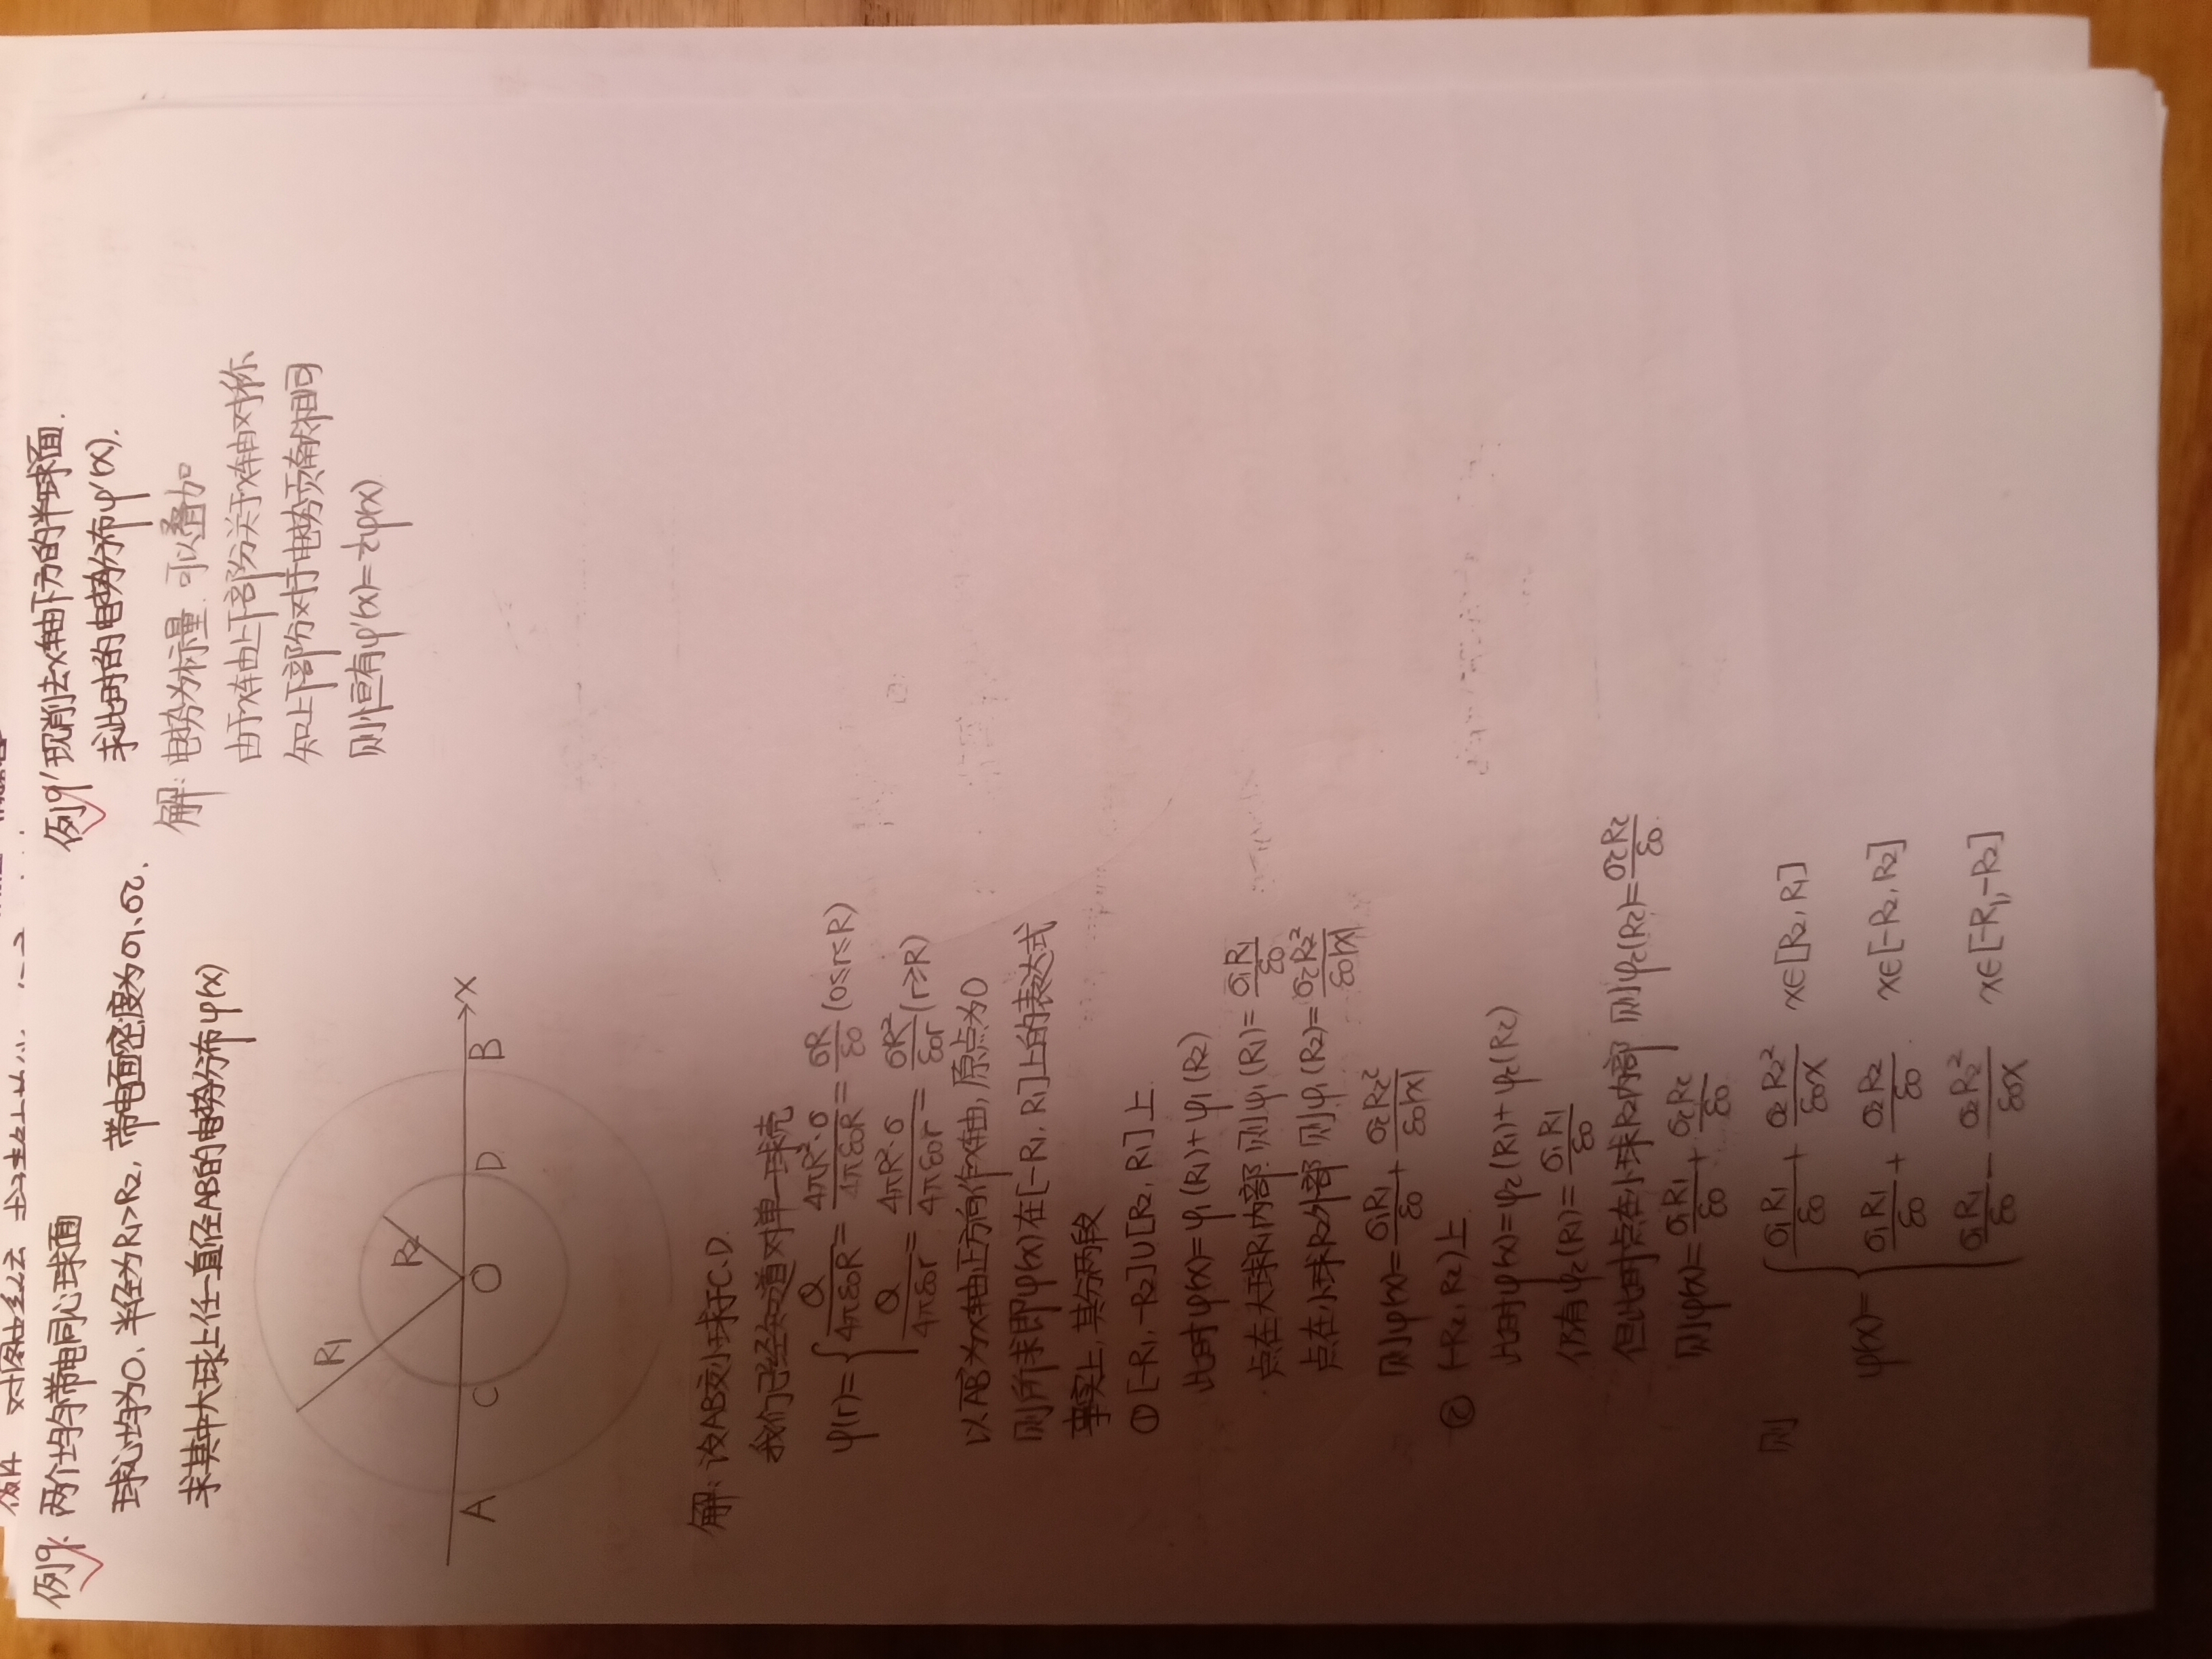 例9: 两个均匀带电同心球面
球心均为O. 半径为R₁>R₂, 带电面密度为σ₁、σ₂.
求其中大球上任一直径AB的电势分布φ(x)
R₁
R₂
A C O D B x
解: 设AB交小球于C.D.
我们已经知道对单一球壳
φ(r)={ Q/4πε₀R = 4πR²·σ/4πε₀R = σR/ε₀ (0≤r≤R)
Q/4πε₀r = 4πR²·σ/4πε₀r = σR²/ε₀r (r>R)
以AB为x轴正方向作x轴, 原点为O
则所求即φ(x)在[-R₁, R₁]上的表达式
事实上, 其分两段
① [-R₁, -R₂]∪[R₂, R₁]上
此时φ(x)=φ₁(R₁)+φ₁(R₂)
点在大球R₁内部 则φ₁(R₁)= σ₁R₁/ε₀
点在小球R₂外部 则φ₁(R₂)= σ₂R₂²/ε₀|x|
则φ(x)= σ₁R₁/ε₀ + σ₂R₂²/ε₀|x|
② (-R₂, R₂)上
此时φ(x)=φ₂(R₁)+φ₂(R₂)
仍有φ₂(R₁)= σ₁R₁/ε₀
但此时点在小球R₂内部 则φ₂(R₂)= σ₂R₂/ε₀
则φ(x)= σ₁R₁/ε₀ + σ₂R₂/ε₀
则 φ(x)={ σ₁R₁/ε₀ + σ₂R₂²/ε₀x x∈[R₂, R₁]
σ₁R₁/ε₀ + σ₂R₂/ε₀ x∈[-R₂, R₂]
σ₁R₁/ε₀ - σ₂R₂²/ε₀x x∈[-R₁, -R₂]
例9' 现削去x轴下方的半球面.
求此时的电势分布φ'(x).
解: 电势为标量. 可以叠加
由于x轴上下部分关于x轴对称
知上下部分对于电势贡献相同
则恒有φ'(x)=½φ(x)